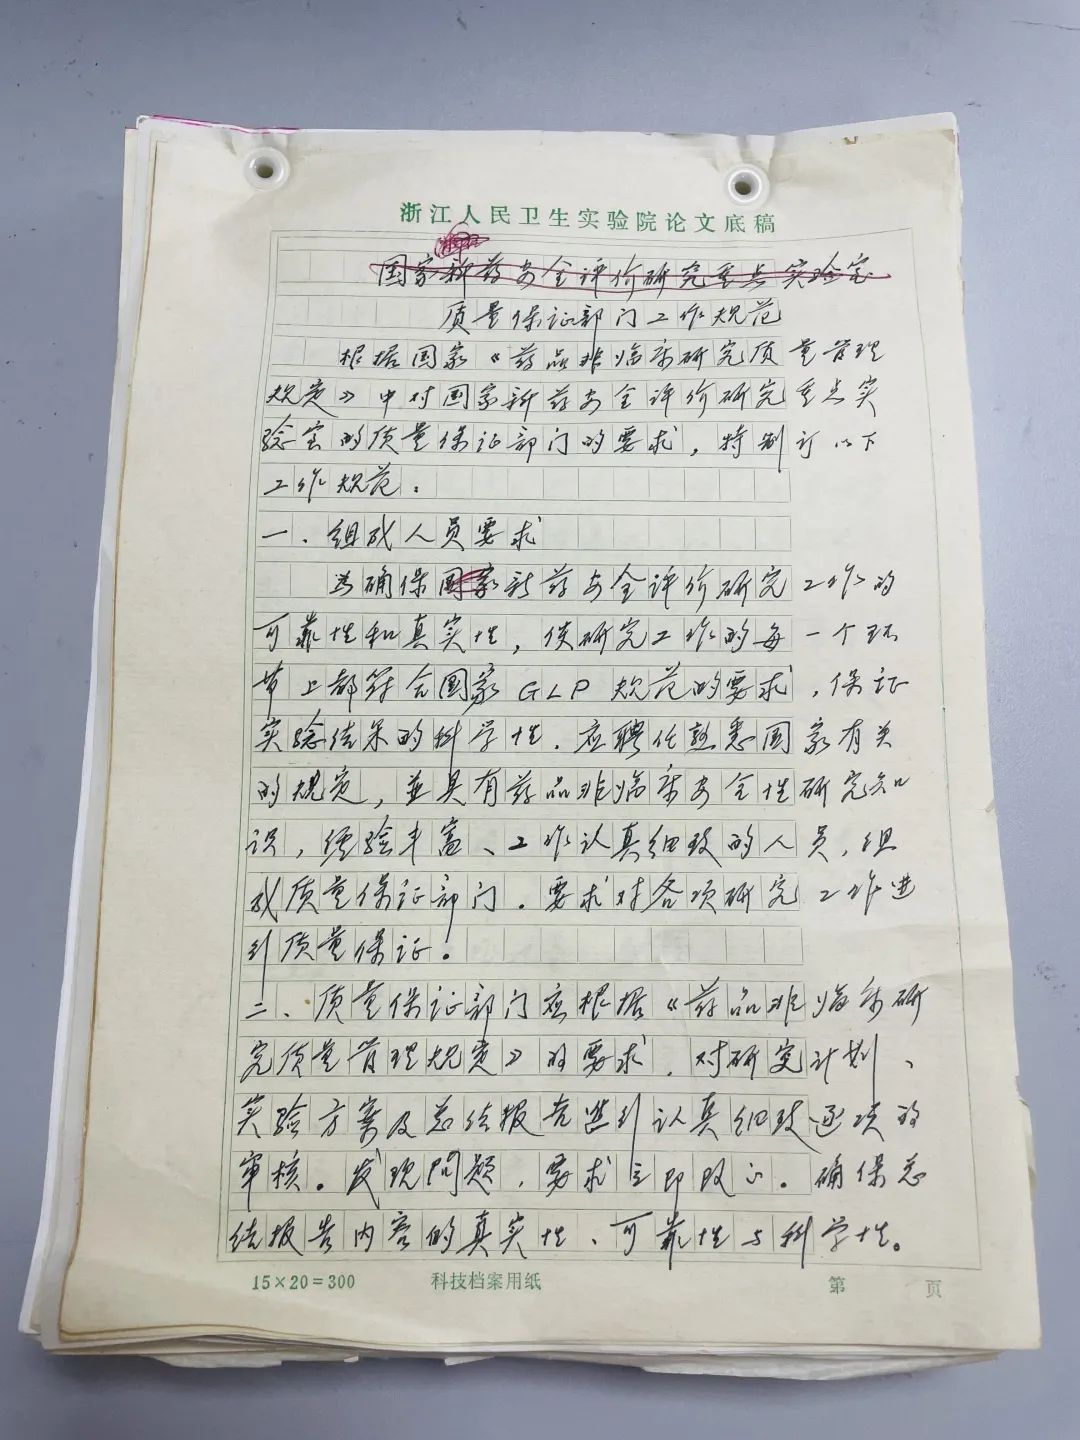 浙江人民卫生实验院论文底稿
国家新药安全评价研究重点实验室
质量保证部门工作规范
根据国家《药品非临床研究质量管理
规定》中对国家新药安全评价研究重点实
验室的质量保证部门的要求，特制订以下
工作规范。
一、组成人员要求
为确保国家新药安全评价研究工作的
可靠性和真实性，使研究工作的每一个环
节上都符合国家GLP规范的要求，保证
实验结果的科学性．应聘任熟悉国家有关
的规定，並具有药品非临床安全性研究知
识，经验丰富、工作认真细致的人员，组
成质量保证部门。要求对各项研究工作进
行质量保证。
二、质量保证部门应根据《药品非临床研
究质量管理规定》的要求，对研究计划、
实验方案及总结报告进行认真细致逐项的
审核。发现问题，要求立即改正。确保总
结报告内容的真实性、可靠性与科学性。
15×20=300 科技档案用纸 第 页